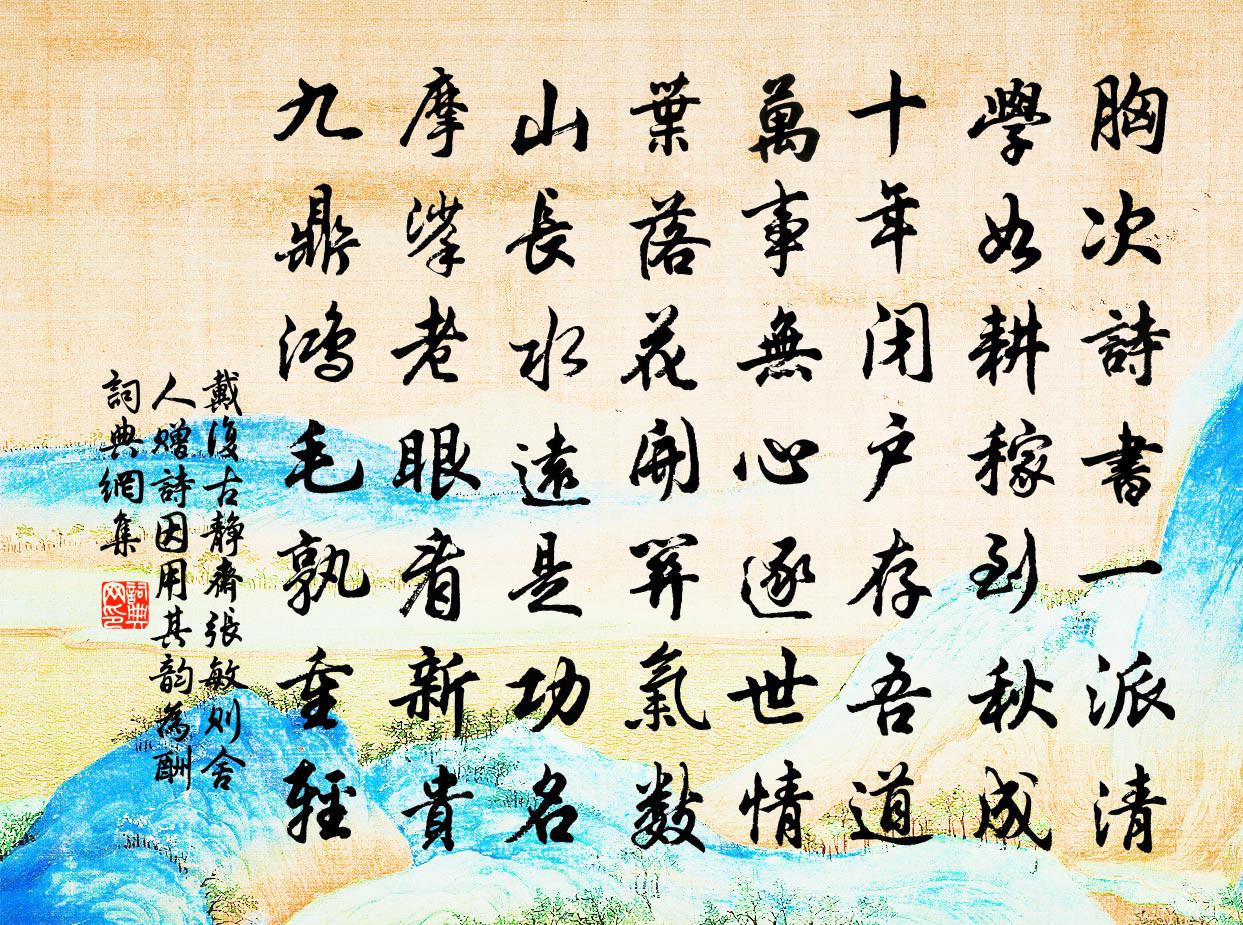 胸次詩書一派清
學如耕稼到秋成
十年闭户存吾道
萬事無心逐世情
葉落花開算氣數
山長水遠是功名
摩挲老眼看新貴
九鼎鴻毛孰重輕
戴復古静齋张敏则舍
人赠詩因用其韵為酬
詞典網集
詞典
网印